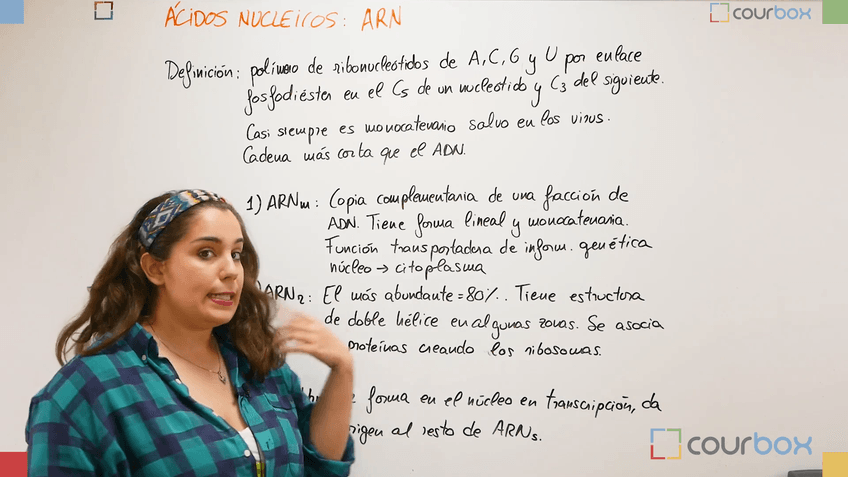 courbox
ÁCIDOS NUCLEICOS: ARN
Definición: polímero de ribonucleótidos de A, C, G y U por enlace
fosfodiéster en el C5 de un nucleótido y C3 del siguiente.
Casi siempre es monocatenario salvo en los virus.
Cadena más corta que el ADN.
1) ARNm: Copia complementaria de una fracción de
ADN. Tiene forma lineal y monocatenaria.
Función transportadora de inform. genética
núcleo → citoplasma
ARNr: El más abundante = 80%. Tiene estructura
de doble hélice en algunas zonas. Se asocia
proteínas creando los ribosomas.
forma en el núcleo en transcripción, da
al resto de ARNs.
courbox